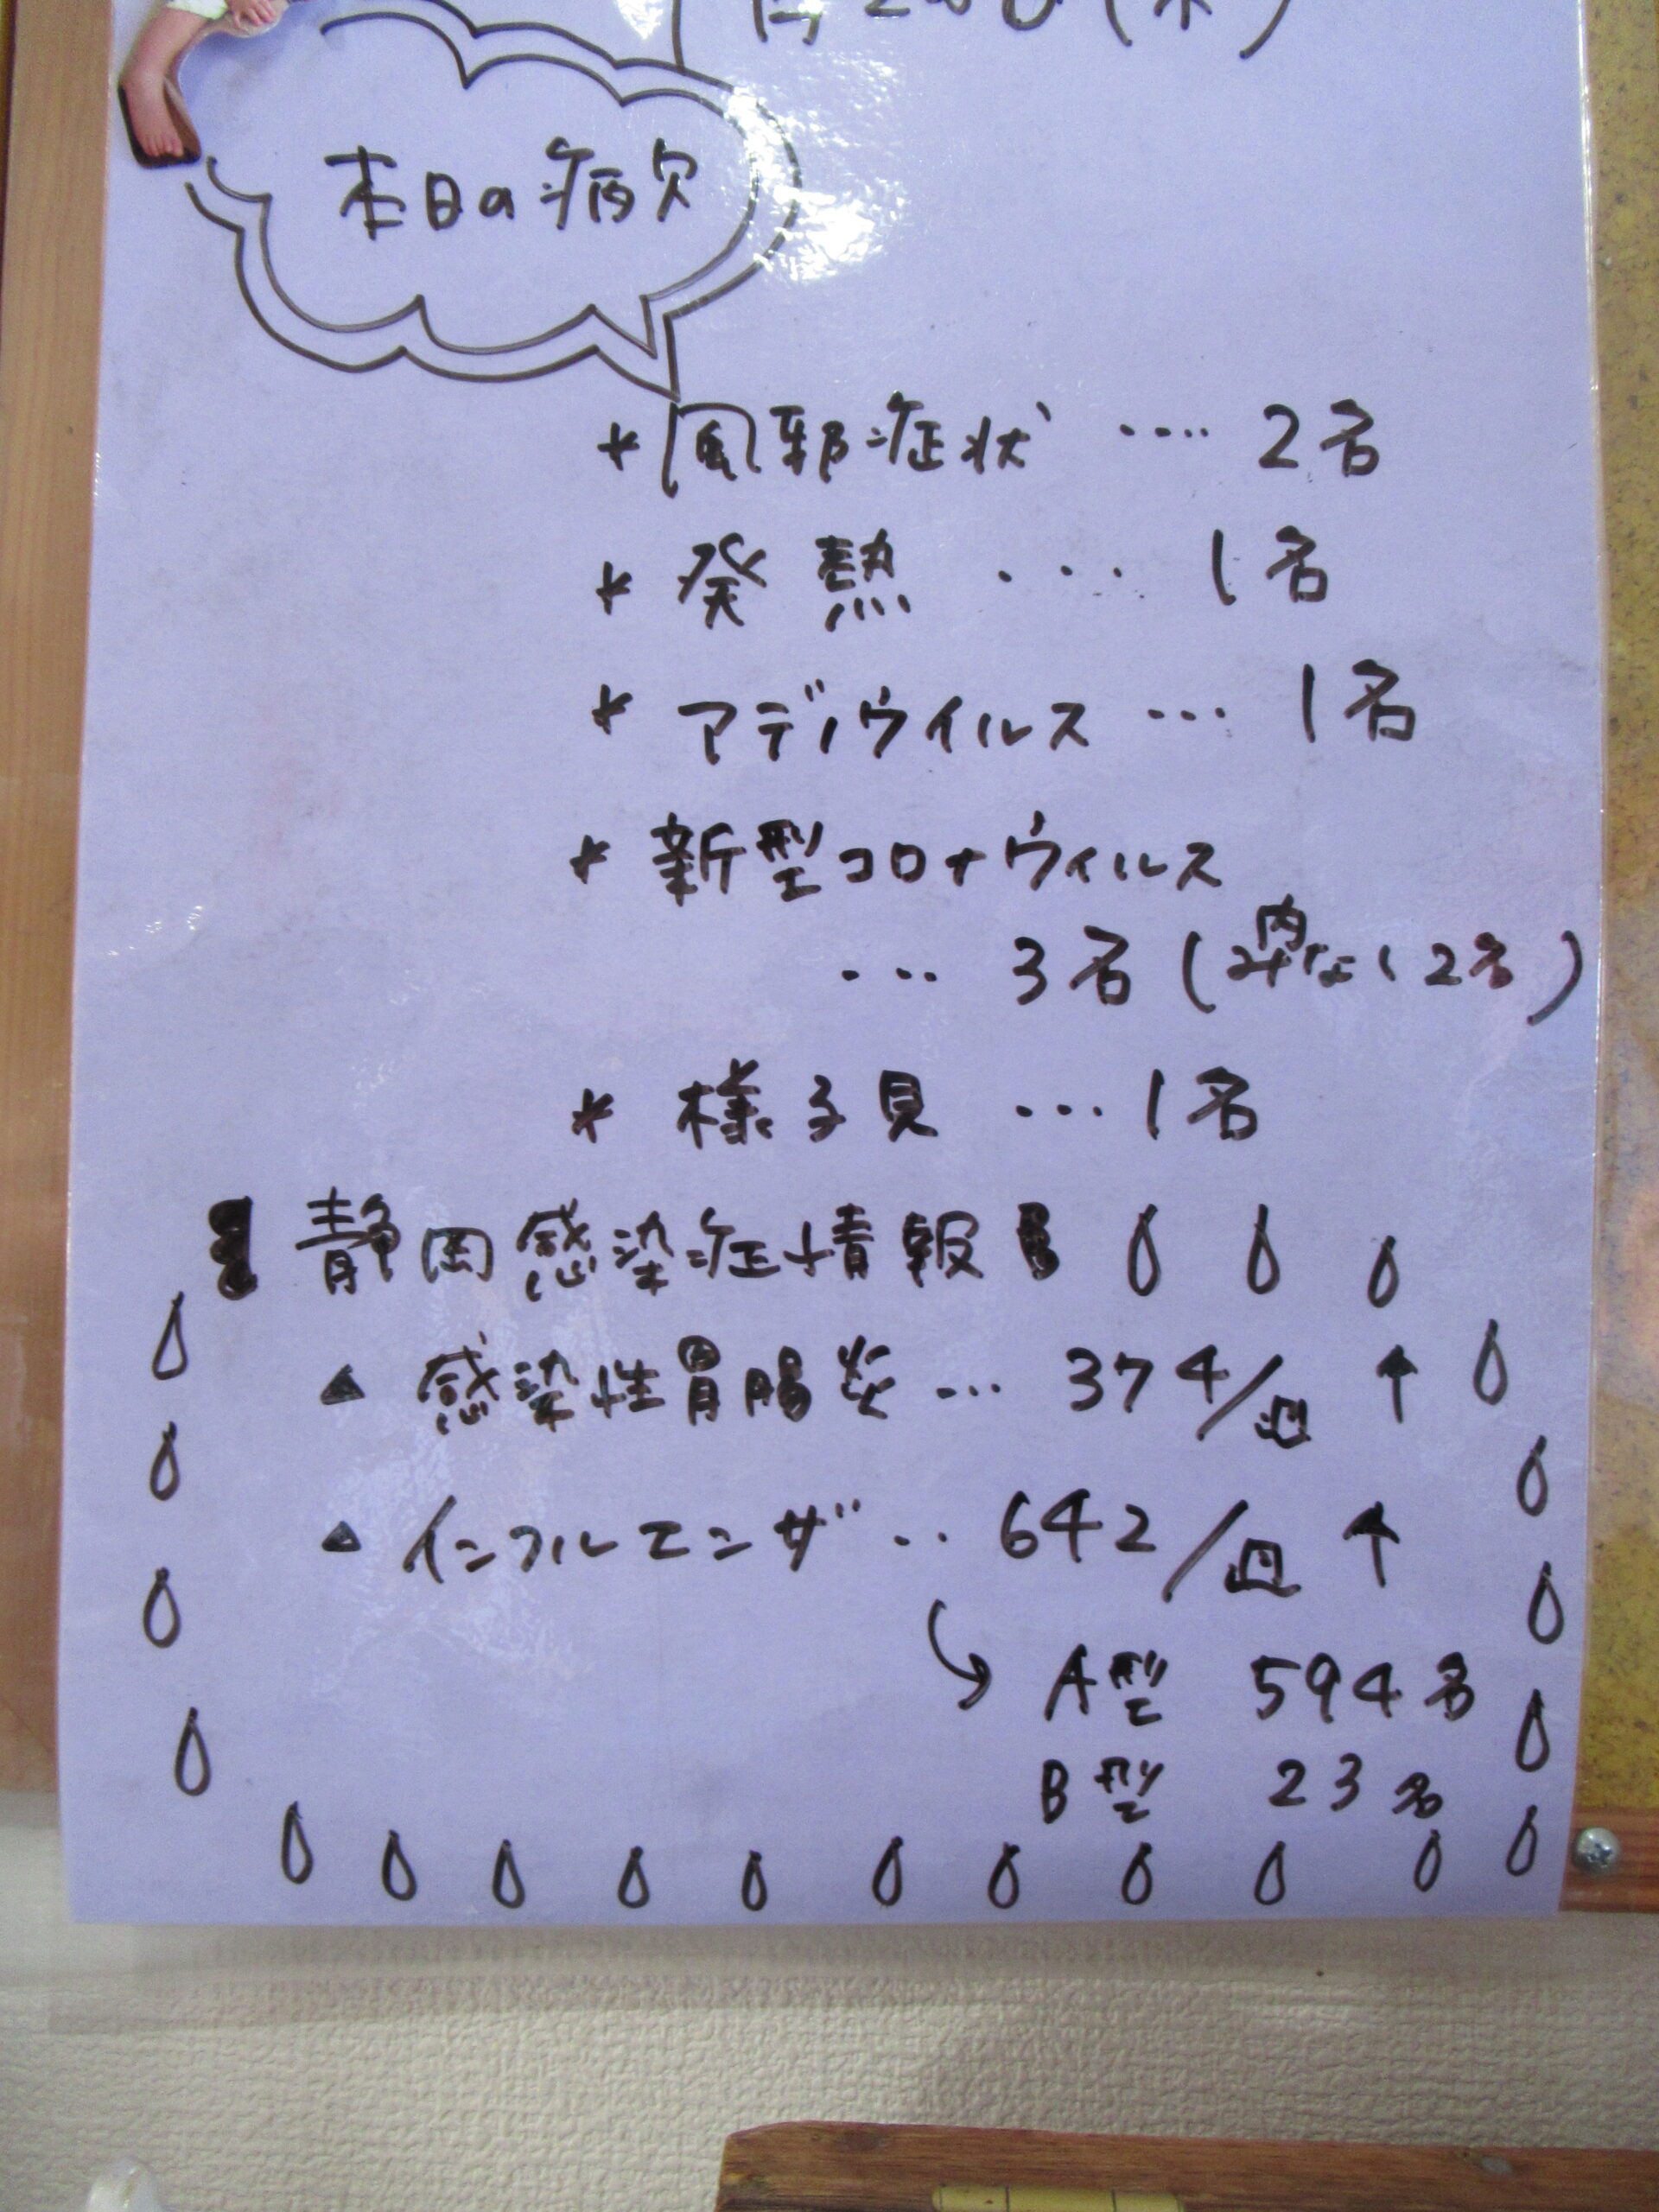 本日の病欠
* 風邪症状 …. 2名
* 発熱 .... 1名
* アデノウイルス … 1名
* 新型コロナウィルス
… 3名(内みなし2名)
* 様子見 … 1名
静岡感染症情報
▲ 感染性胃腸炎 … 374/週 ↑
▲ インフルエンザ ‥ 642/週 ↑
A型 594名
B型 23名